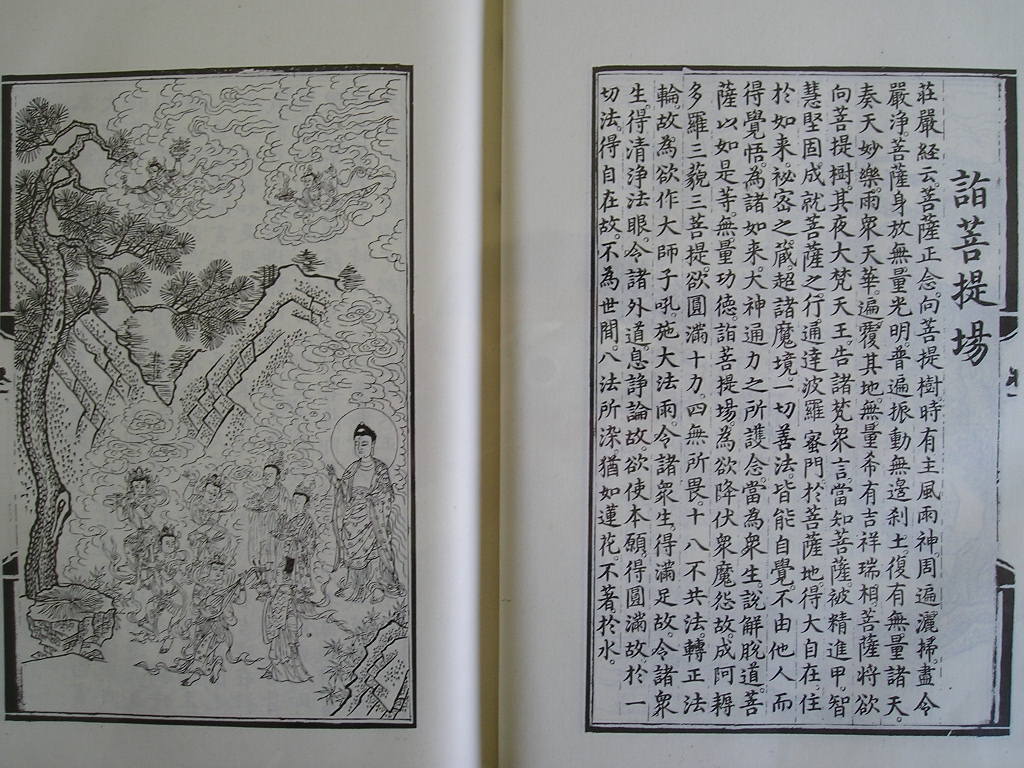 詣菩提場
莊嚴経云。菩薩正念。向菩提樹。時有主風雨神。周遍灑掃。盡令
嚴淨。菩薩身放無量光明。普遍振動無邊刹土。復有無量諸天。
奏天妙樂。雨衆天華。遍覆其地。無量希有吉祥瑞相。菩薩將欲
向菩提樹。其夜大梵天王。告諸梵衆言。當知菩薩。被精進甲。智
慧堅固。成就菩薩之行。通達波羅蜜門。於菩薩地。得大自在。住
於如来。祕密之藏。超諸魔境。一切善法。皆能自覺。不由他人。而
得覺悟。為諸如来。大神通力之所護念。當為衆生。説解脱道。菩
薩以如是等。無量功德。詣菩提場。為欲降伏衆魔怨故。成阿耨
多羅三藐三菩提。欲圓滿十力。四無所畏。十八不共法。轉正法
輪。故為欲作大師子吼。施大法雨。令諸衆生。得滿足故。令諸衆
生。得清淨法眼。令諸外道。息諍論故。欲使本願得圓滿故。於一
切法。得自在故。不為世間八法所染。猶如蓮花。不著於水。